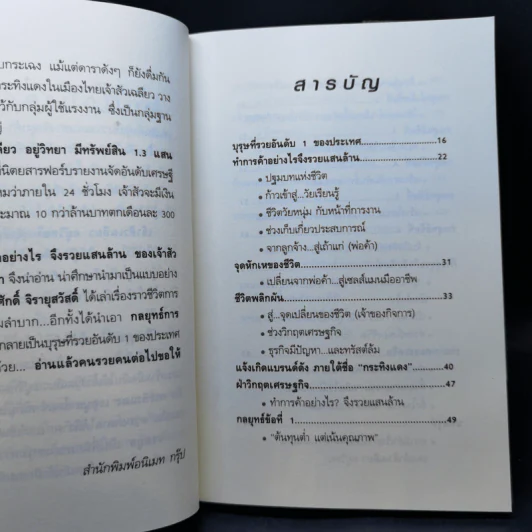 บกระเฉง แม้แต่ดาราดังๆ ก็ยังดื่มกัน
ระทิงแดงในเมืองไทยเจ้าสัวเฉลียว วาง
ว้กับกลุ่มผู้ใช้แรงงาน ซึ่งเป็นกลุ่มฐาน
ลียว อยู่วิทยา มีทรัพย์สิน 1.3 แสน
นิตยสารฟอร์บรายงานจัดอันดับเศรษฐี
หมว่าภายใน 24 ชั่วโมง เจ้าสัวจะมีเงิน
ะมาณ 10 กว่าล้านบาทตกเดือนละ 300
อย่างไร จึงรวยแสนล้าน ของเจ้าสัว
า จึงน่าอ่าน น่าศึกษานำมาเป็นแบบอย่าง
ศักดิ์ จิรายุสวัสดิ์ ได้เล่าเรื่องราวชีวิตการ
มลำบาก...อีกทั้งได้นำเอา กลยุทธ์การ
กลายเป็นบุรุษที่รวยอันดับ 1 ของประเทศ
ด้วย... อ่านแล้วคนรวยคนต่อไปขอให้
สำนักพิมพ์อนิเมท กรุ๊ป
สารบัญ
บุรุษที่รวยอันดับ 1 ของประเทศ....................16
ทำการค้าอย่างไรจึงรวยแสนล้าน....................22
• ปฐมบทแห่งชีวิต
• ก้าวเข้าสู่...วัยเรียนรู้
• ชีวิตวัยหนุ่ม กับหน้าที่การงาน
• ช่วงเก็บเกี่ยวประสบการณ์
• จากลูกจ้าง...สู่เถ้าแก่ (พ่อค้า)
จุดหักเหของชีวิต....................31
• เปลี่ยนจากพ่อค้า...สู่เซลส์แมนมืออาชีพ
ชีวิตพลิกผัน....................33
• สู่...จุดเปลี่ยนของชีวิต (เจ้าของกิจการ)
• ช่วงวิกฤตเศรษฐกิจ
• ธุรกิจมีปัญหา...และทรัสต์ล้ม
แจ้งเกิดแบรนด์ดัง ภายใต้ชื่อ "กระทิงแดง"........40
ฝ่าวิกฤตเศรษฐกิจ....................47
• ทำการค้าอย่างไร? จึงรวยแสนล้าน
กลยุทธ์ข้อที่ 1....................49
• "ต้นทุนต่ำ แต่เน้นคุณภาพ"